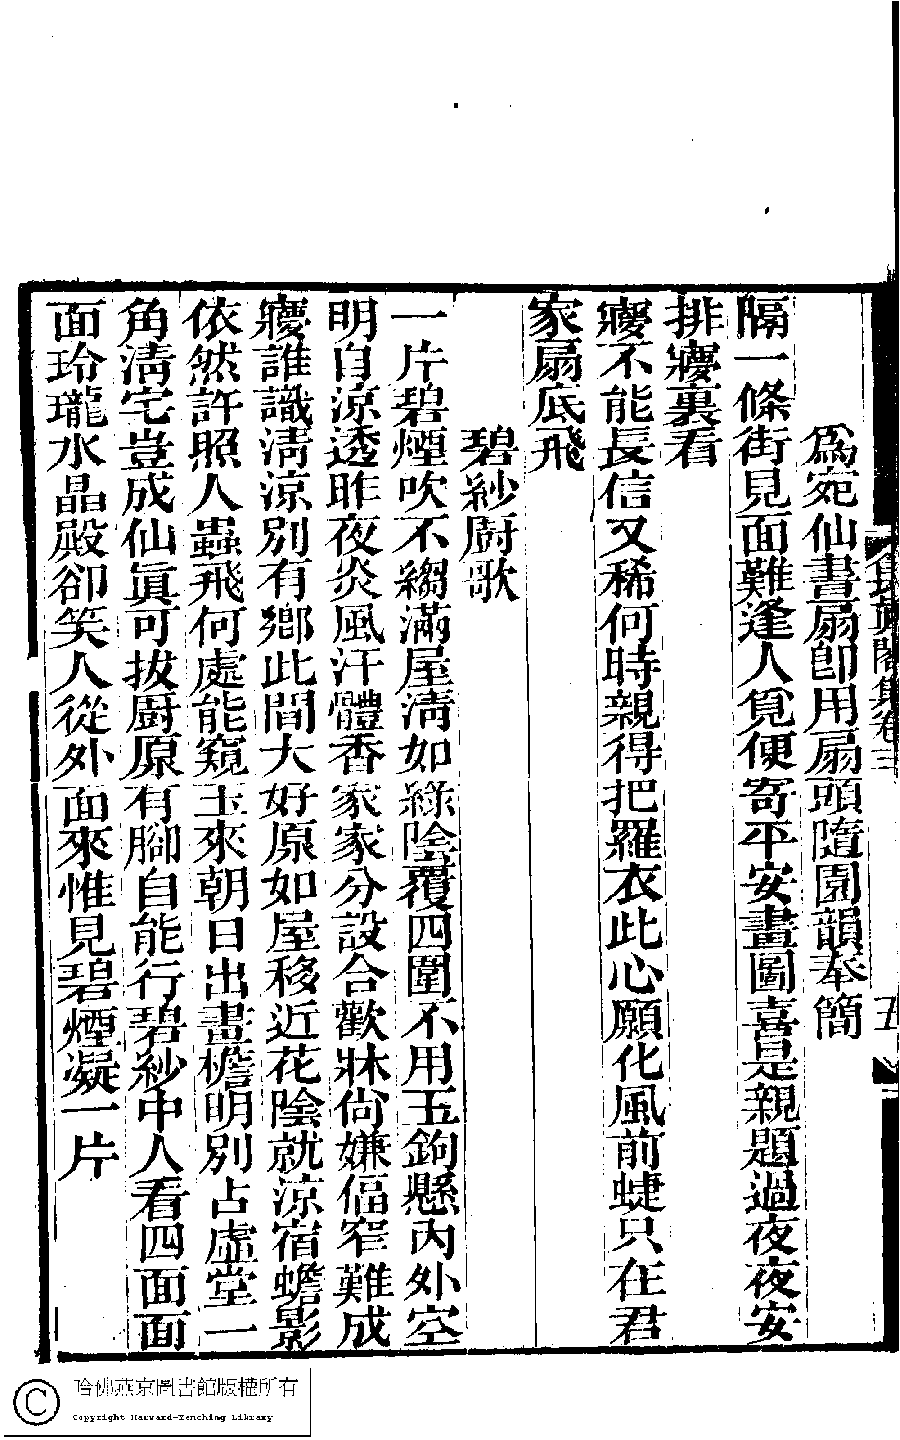 爲宛仙畫扇卽用扇頭隨園韻奉簡
隔一條街見面難逢人覓便寄平安畫圖喜是親題過夜夜安
排㝱裏看
㝱不能長信又稀何時親得把羅衣此心願化風前蜨只在君
家扇底飛
碧紗廚歌
一片碧煙吹不縐滿屋淸如綠陰覆四圍不用玉鉤懸內外空
明自涼透昨夜炎風汗體香家家分設合歡牀尙嫌偪窄難成
㝱誰識淸涼別有鄉此間大好原如屋移近花陰就涼宿蟾影
依然許照人蟲飛何處能窺玉來朝日出畫檐明別占虛堂一
角淸宅豈成仙眞可拔廚原有腳自能行碧紗中人看四面面
面玲瓏水晶殿卻笑人從外面來惟見碧煙凝一片
集卷三
五
哈佛燕京圖書館版權所有
Copyright Harvard-Yenching Library